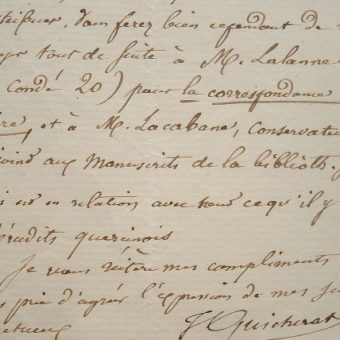 Vous ferez bien cependant de
tout de suite à M. Lalanne
Condé 20) pour la correspondance
, et à M. Lacabane, Conservate
joint aux Manuscrits de la biblioth.
est en relation avec tous ce qu'il y
érudits quercinois
Je vous réitère mes compliments
prie d'agréer l'expression de mes
J Quicherat